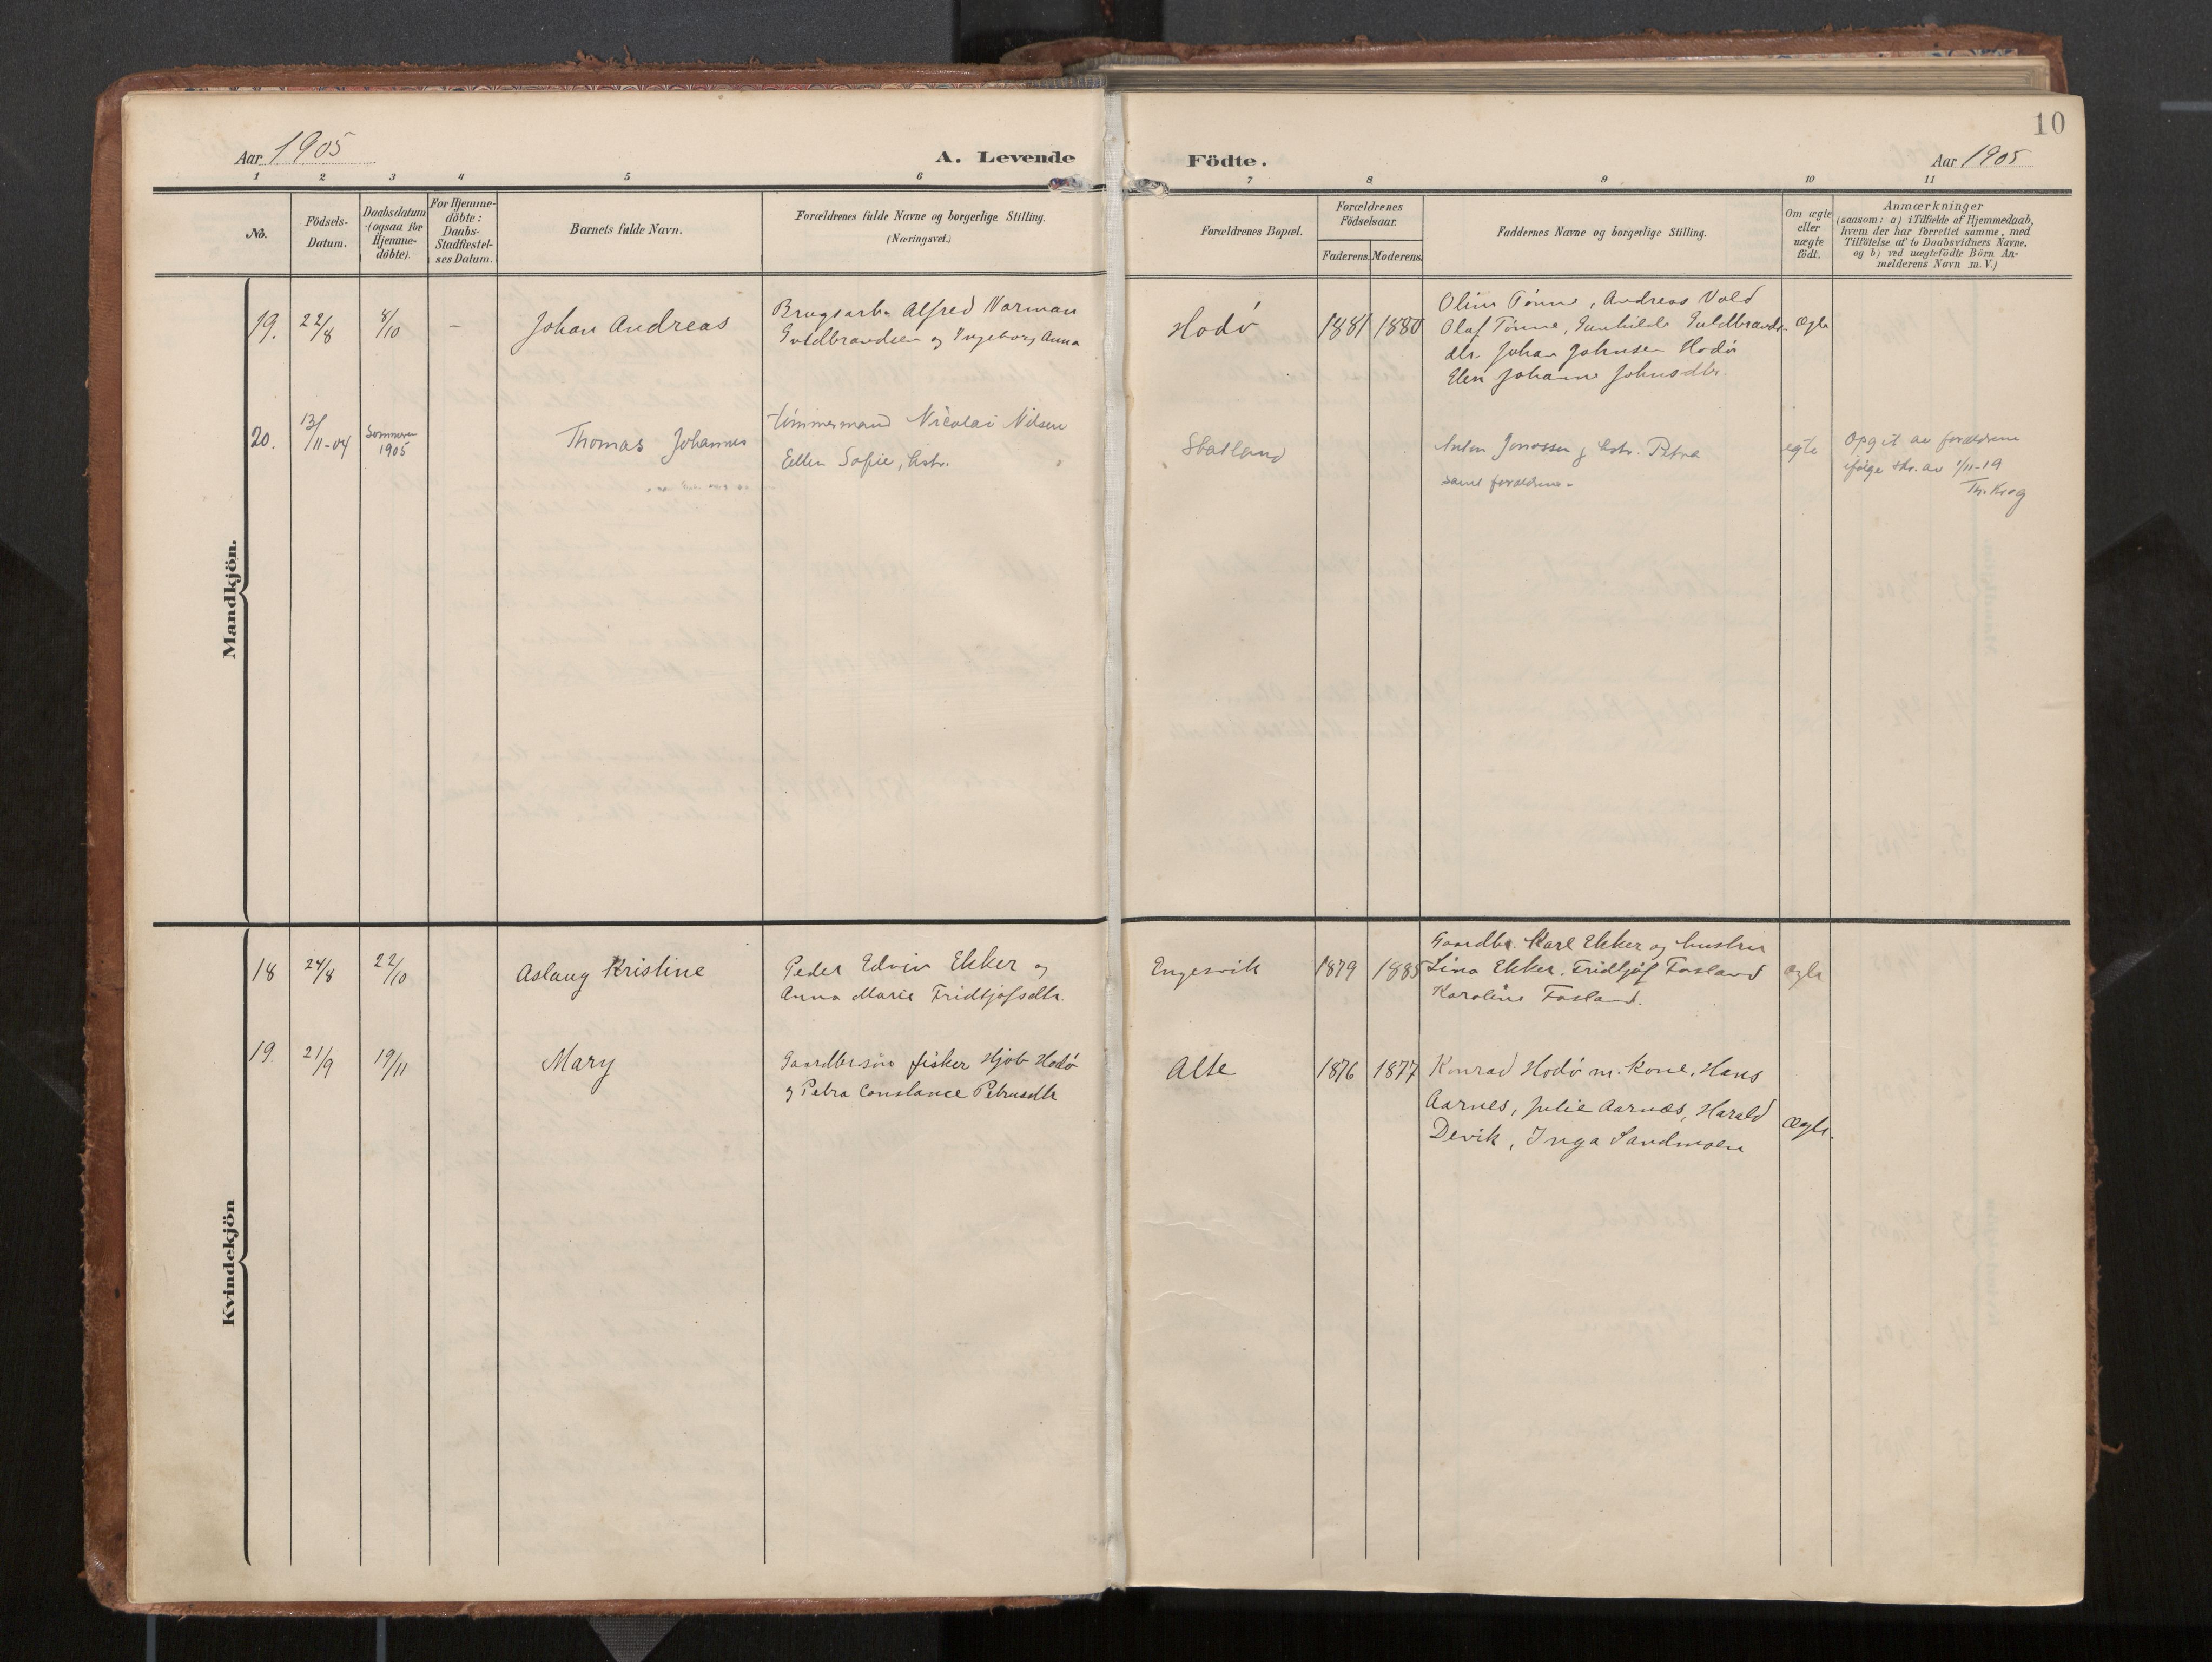 10
Aar 1905
A. Levende
Födte.
Aar 1905
1 2 3 4 5 6 7 8 9 10 11
No.
Födsels-
Datum.
Daabsdatum
(ogsaa for
Hjemme-
döbte).
For Hjemme-
döbte:
Daabs-
Stadfæstel-
ses Datum.
Barnets fulde Navn.
Forældrenes fulde Navne og borgerlige Stilling.
(Næringsvei.)
Forældrenes Bopæl.
Forældrenes
Födselsaar.
Faderens. Moderens.
Faddernes Navne og borgerlige Stilling.
Om ægte
eller
uægte
födt.
Anmærkninger
(saasom: a) i Tilfælde af Hjemmedaab,
hvem der har forrettet samme, med
Tilföielse af to Daabsvidners Navne,
og b) ved uægtefödte Börn An-
melderens Navn m. V.)
Mandkjön.
19. 22/8 8/10 - Johan Andreas
Brugsarb. Alfred Norman
Guldbrandsen og Ingeborg Anna
Hodö 1881 1880
Olini Tönne, Andreas Vold
Olaf Tönne, Gunhilde Guldbrands-
dtr. Johan Johnsen Hodö
Elen Johanne Johnsdtr.
Ægte
20. 13/11-04 Sommeren
1905
Thomas Johannes
Tömmermand Nicolai Nilsen
Ellen Sofie, hstr.
Statland
Anton Jonassen og hstr. Petra
samt forældrene.
egte
Opgit av forældrene
ifölge skr. av 1/11-19
Th. Krog
Kvindekjön
18 24/8 22/10 Aslaug Kristine
Peder Edvin Ekker og
Anna Marie Fridtjofsdtr.
Engesvik 1879 1885
Gaardbr. Karl Ekker og hustru
Lina Ekker. Fridtjof Fosland
Karoline Fosland.
Ægte
19. 21/9 19/11 Mary
Gaardbrsön fisker Hjob Hodö
og Petra Constance Petrusdtr
Alte 1876 1877
Konrad Hodö m. Kone, Hans
Aarnes, Julie Aarnæs, Harald
Devik, Inga Sandmoen
Ægte.